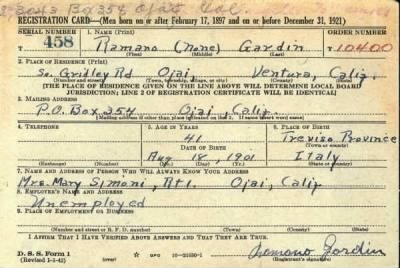 Box 354 Ojai, Cal.
REGISTRATION CARD—(Men born on or after February 17, 1897 and on or before December 31, 1921)
SERIAL NUMBER 1. NAME (Print) ORDER NUMBER
458 Ramano (None) Gardin 10400
(First) (Middle) (Last)
2. PLACE OF RESIDENCE (Print)
So. Gridley Rd Ojai, Ventura, Calif.
(Number and street) (Town, township, village, or city) (County) (State)
[THE PLACE OF RESIDENCE GIVEN ON THE LINE ABOVE WILL DETERMINE LOCAL BOARD
JURISDICTION; LINE 2 OF REGISTRATION CERTIFICATE WILL BE IDENTICAL]
3. MAILING ADDRESS
P.O. Box 354 Ojai, Calif.
[Mailing address if other than place indicated on line 2. If same insert word same]
4. TELEPHONE 5. AGE IN YEARS 6. PLACE OF BIRTH
41 Treviso Province
DATE OF BIRTH (Town or county)
Aug 18, 1901 Italy
(Exchange) (Number) (Mo.) (Day) (Yr.) (State or country)
7. NAME AND ADDRESS OF PERSON WHO WILL ALWAYS KNOW YOUR ADDRESS
Mrs. Mary Simoni, Rt 1. Ojai, Calif
8. EMPLOYER'S NAME AND ADDRESS
Unemployed
9. PLACE OF EMPLOYMENT OR BUSINESS
(Number and street or R. F. D. number) (Town) (County) (State)
I AFFIRM THAT I HAVE VERIFIED ABOVE ANSWERS AND THAT THEY ARE TRUE.
D. S. S. Form 1
(Revised 1-1-42) GPO 16—21630-1 Gardin
(Registrant's signature)